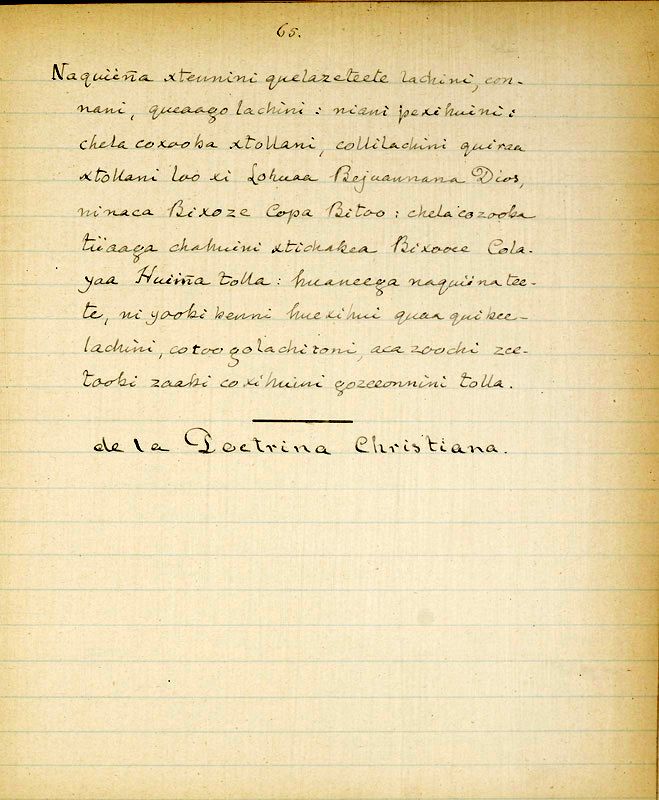 65.
Naquiiña xtennini quelazeteete lachini, con-
nani, queaago lachini: niani pexihuini:
chela coxooba xtollani, collilachini quiraa
xtollani loo xi Lohuaa Bejuannana Dios,
ninaca Bixoze Copa Bitoo: chela cozooba
tiiaaga chahuini xtichakea Bixooce Cola-
yaa Huiiña tolla: huaneega naquiina tee-
te, ni yoobi benni huexihui quaa quibee-
lachini, cotoogolachitoni, aca zoochi zee-
toobi zaabi coxihuini gozeeonnini tolla.
de la Doctrina Christiana.